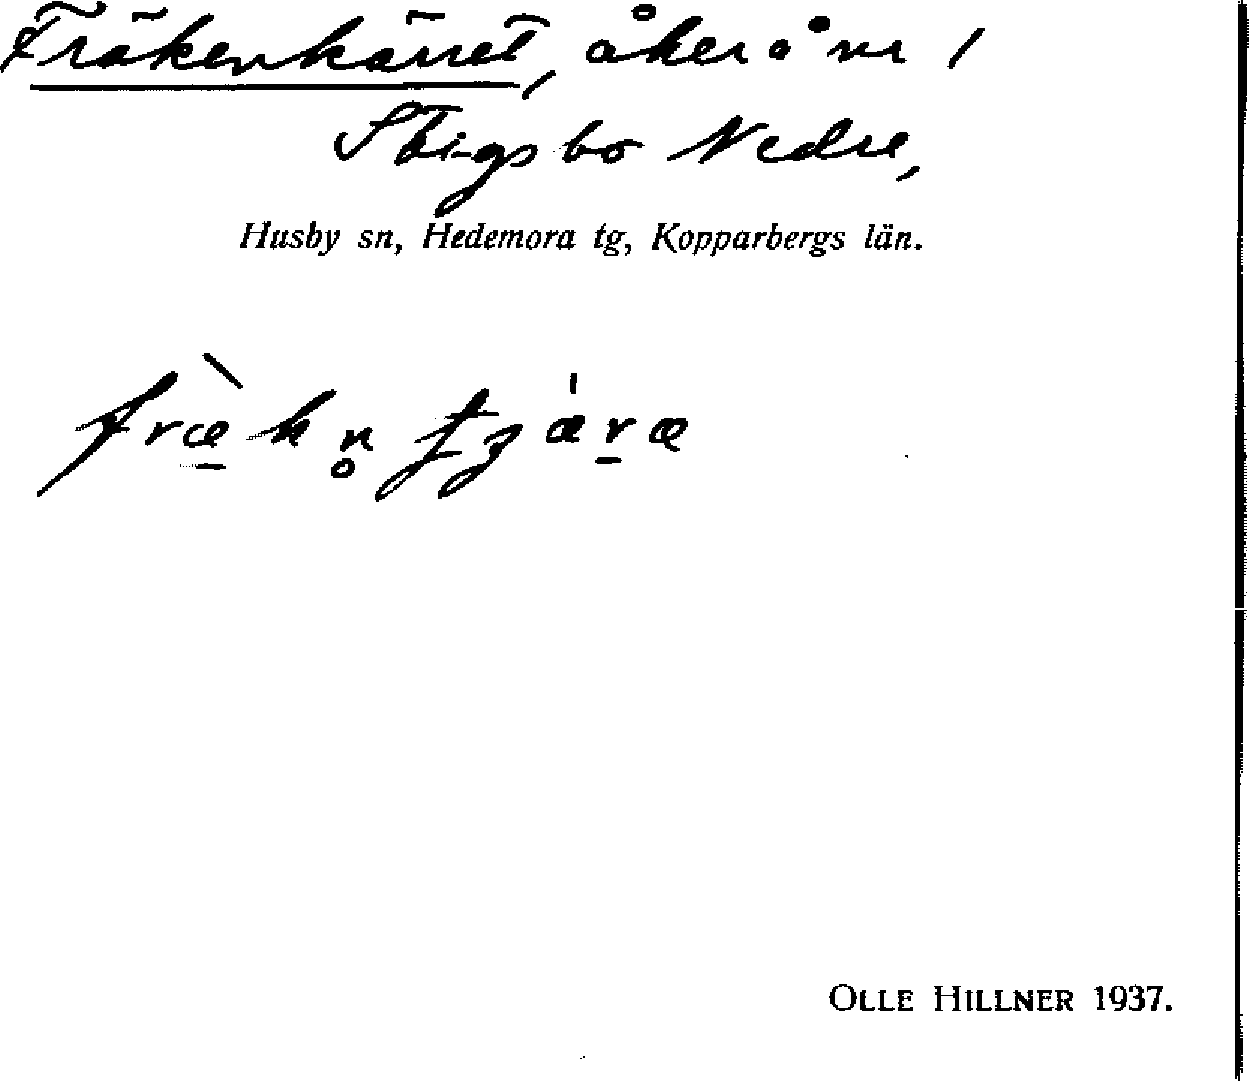 Fräkenkärret, åker å nr 1
Stigsbo Nedre,
Husby sn, Hedemora tg, Kopparbergs län.
OLLE HILLNER 1937.